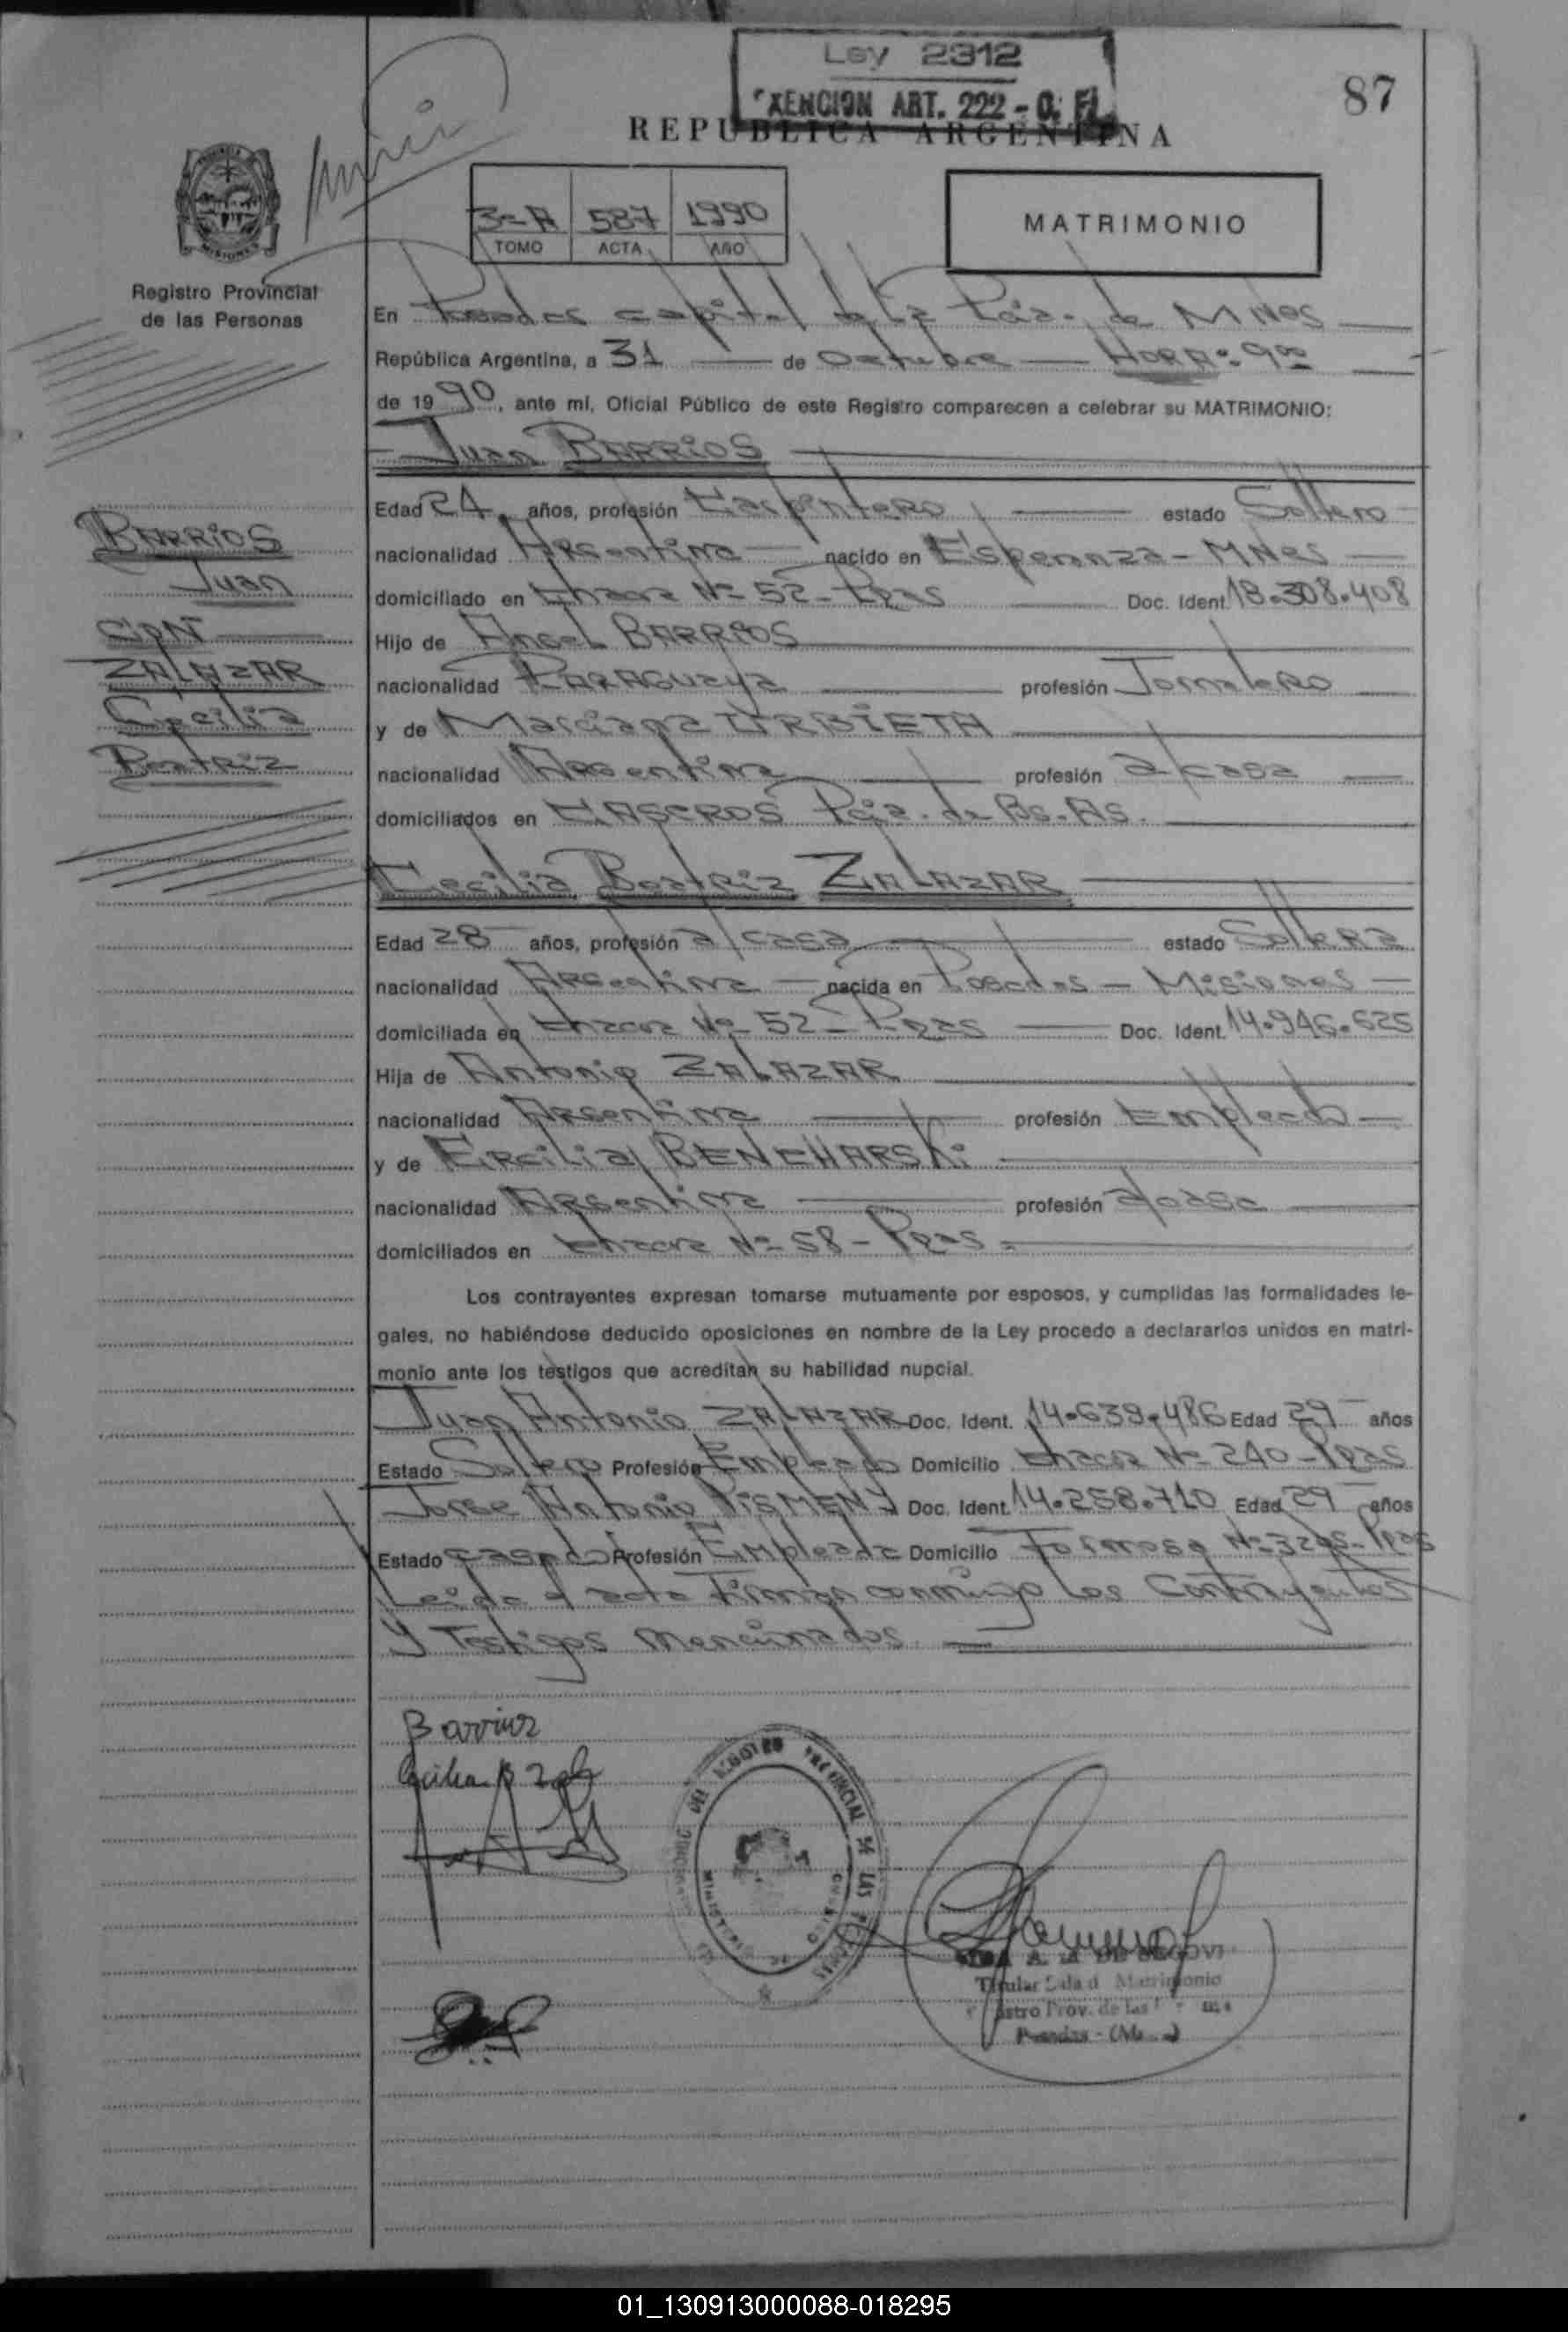 Ley 2312
EXENCION ART. 222 - C. F.
87
REPUBLICA ARGENTINA
3-A 587 1990
TOMO ACTA AÑO
MATRIMONIO
MISIONES
Registro Provincial
de las Personas
En Posadas capital de la Pcia. de MNes
República Argentina, a 31 de Octubre HORA: 9 00
de 19 90, ante mí, Oficial Público de este Registro comparecen a celebrar su MATRIMONIO:
Juan BARRIOS
Edad 24 años, profesión Carpintero estado Soltero
nacionalidad Argentina nacido en Esperanza - MNes
domiciliado en Chacra Nº 52 - Pdas Doc. Ident. 18.308.408
Hijo de Angel BARRIOS
nacionalidad PARAGUAYA profesión Jornalero
y de Marciana URBIETA
nacionalidad Argentina profesión a/casa
domiciliados en CASEROS Pcia. de Bs. As.
BARRIOS
Juan
CON
ZALAZAR
Cecilia
Beatriz
Cecilia Beatriz ZALAZAR
Edad 28 años, profesión a/casa estado Soltera
nacionalidad Argentina nacida en Posadas - Misiones
domiciliada en Chacra Nº 52 - Pdas Doc. Ident. 14.946.625
Hija de Antonio ZALAZAR
nacionalidad Argentina profesión Empleado
y de Ercilia BENCHARSKI
nacionalidad Argentina profesión a/casa
domiciliados en Chacra Nº 58 - Pdas
Los contrayentes expresan tomarse mutuamente por esposos, y cumplidas las formalidades le-
gales, no habiéndose deducido oposiciones en nombre de la Ley procedo a declararlos unidos en matri-
monio ante los testigos que acreditan su habilidad nupcial.
Juan Antonio ZALAZAR Doc. Ident. 14.639.486 Edad 29 años
Estado Soltero Profesión Empleado Domicilio Chacra Nº 240 - Pdas
Jorge Antonio PISMENY Doc. Ident. 14.258.710 Edad 29 años
Estado casado Profesión Empleado Domicilio Formosa Nº Pdas
Leida el acta Firman conmigo los Contrayentes
Y Testigos mencionados
Barrios
Cecilia B
REGISTRO PROVINCIAL DE LAS
A. DE SEGOVI
Titular Sala d Matrimonio
Prov. de las
Posadas
01_130913000088-018295